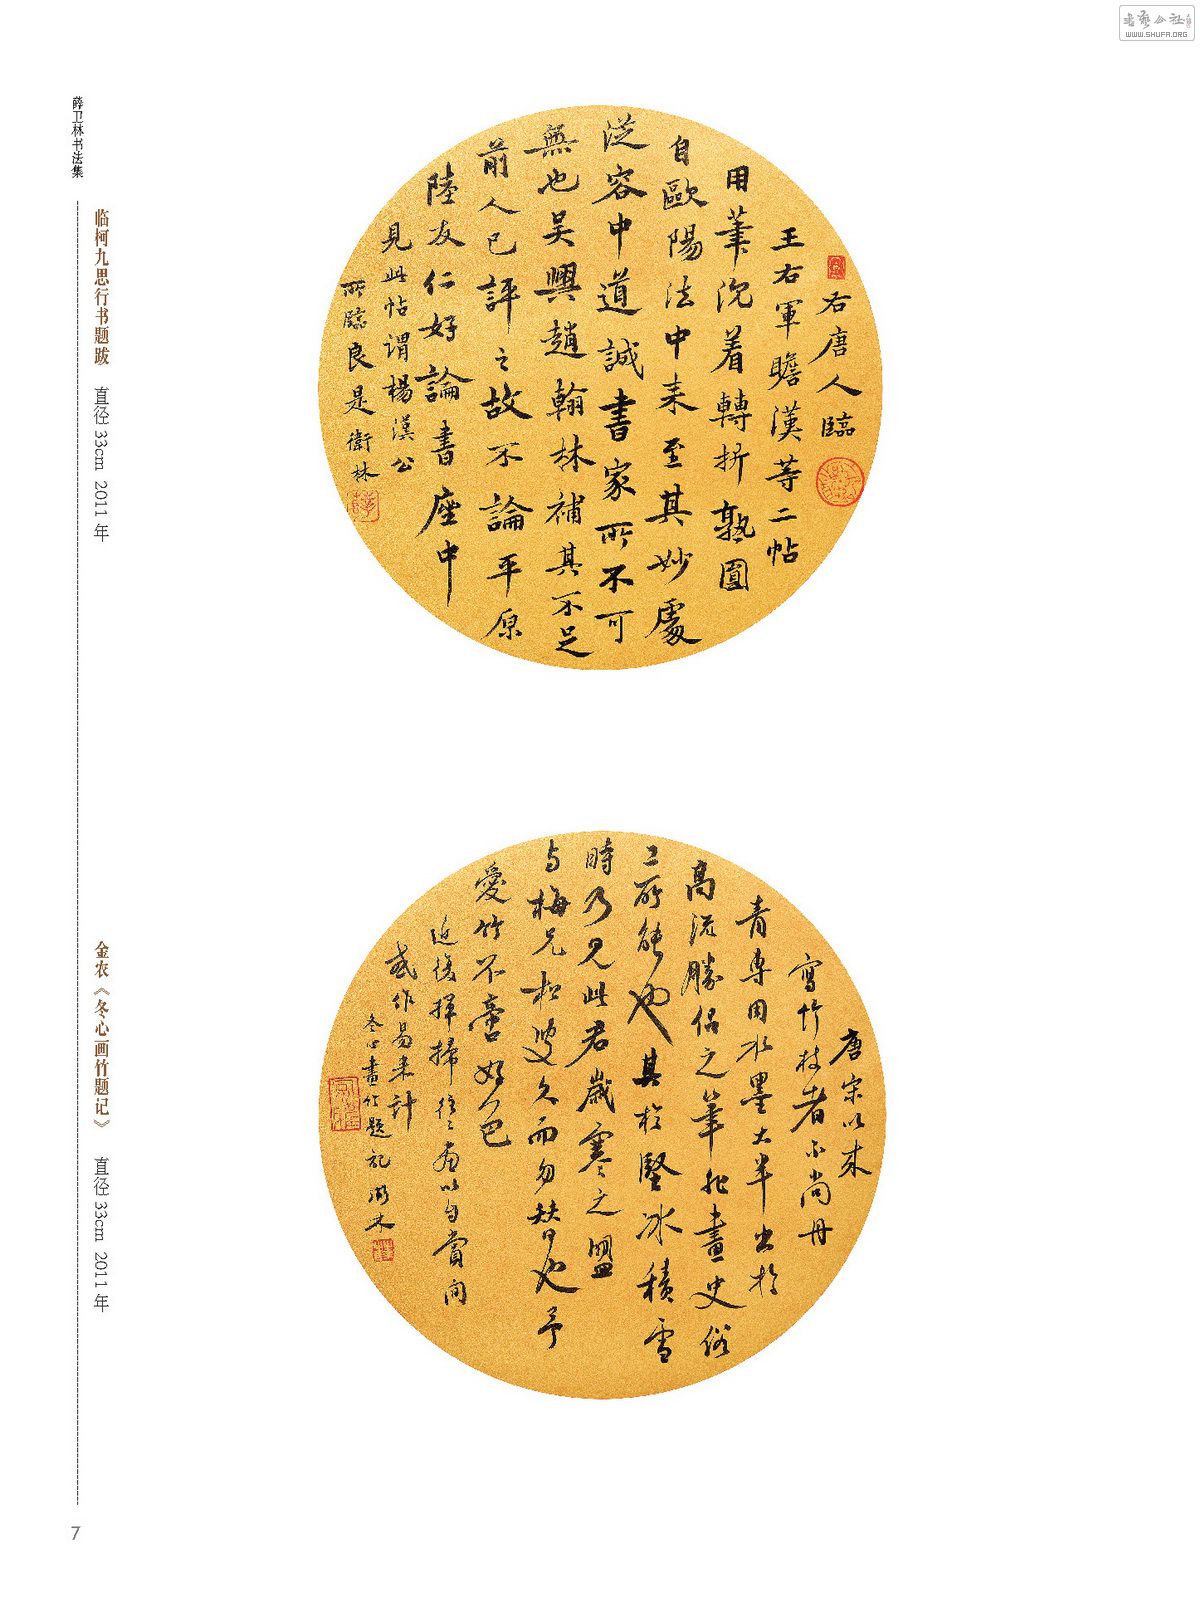 书艺公社
WWW.SHUFA.ORG
薛卫林书法集
临柯九思行书题跋 直径33cm 2011年
右唐人臨
王右軍瞻漢等二帖
用筆沉着轉折熟圓
自歐陽法中来至其妙處
從容中道誠書家所不可
無也吴興趙翰林補其不足
前人已評之故不論平原
陸友仁好論書座中
見此帖谓楊漢公
所臨良是衛林
金农《冬心画竹题记》 直径33cm 2011年
唐宋以来
寫竹枝者不尚丹
青専用水墨大半出於
高流勝侣之筆非畫史俗
工所能也其於堅冰積雪
時乃見此君歲寒之盟
与梅兄松叟久而勿替也予
愛竹不啻好色
近復揮掃往〻画以自賞间
或作易米計
冬心畫竹题記衛林
7